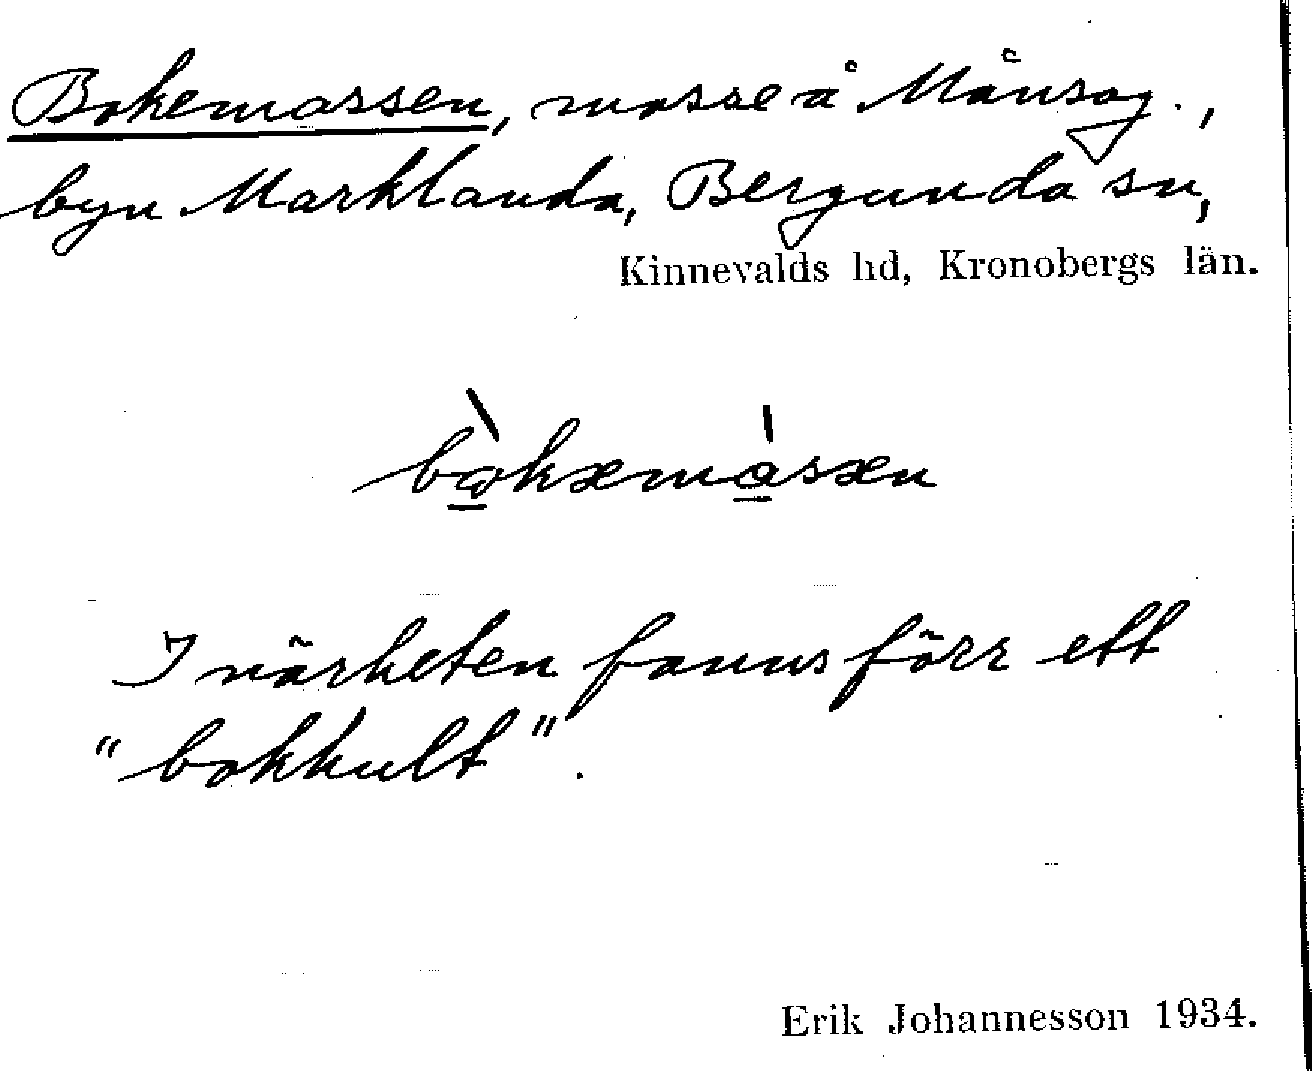 Bokemossen, mosse å Månsag.,
byn Marklanda, Bergunda sn,
Kinnevalds hd, Kronobergs län.
bòkæmåsæn
I närheten fanns förr ett
"bokhult".
Erik Johannesson 1934.